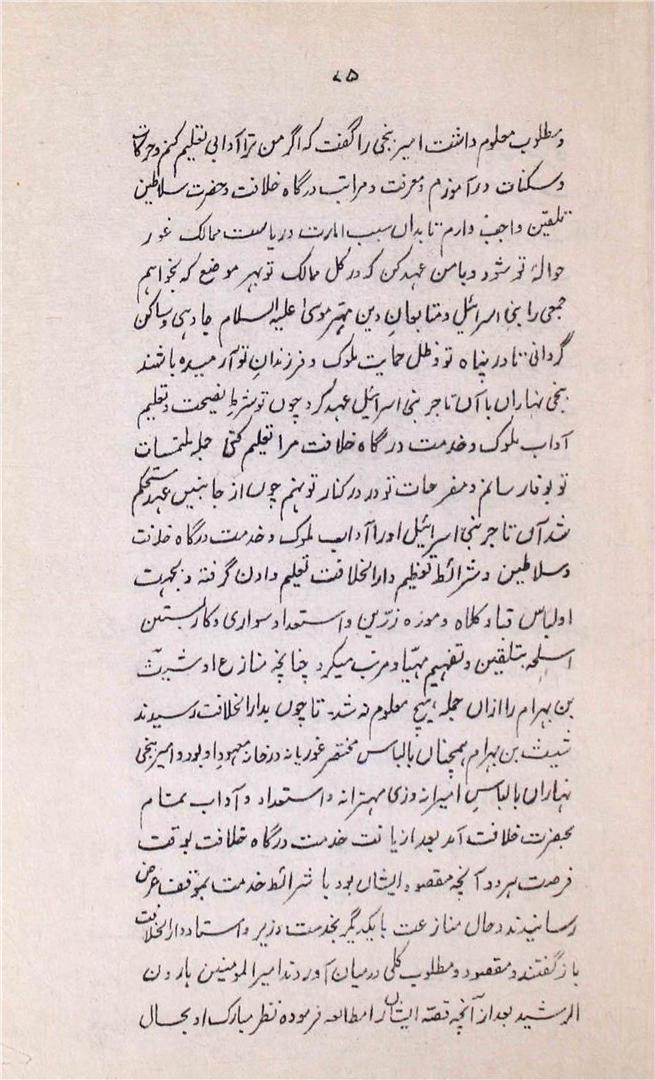 ۷۵
و مطلوب معلوم داشت امیر بنجی را گفت که اگر من ترا آدابی تعلیم کنم و حرکات
و سکنات در آموزم و معرفت و مراتب درگاه خلافت و حضرت سلاطین
تلقین واجب دارم تا بدان سبب امارت و ریاست ممالک غور
حوالهٔ تو شود و با من عهد کن که در کل ممالک تو بهر موضع که بخواهم
جمعی را بنی اسرائیل و متابعان دین مهتر موسیٰ علیه السلام جا دهی و ساکن
گردانی تا در پناه تو و ظل حمایت ملوک و فرزندان تو آرمیده باشند
بنجی نهاران با آن تاجر بنی اسرائیل عهد کرد چون تو شرط نصیحت و تعلیم
آداب ملوک و خدمت درگاه خلافت مرا تعلیم کنی جمله ملتمسات
تو بوفا رسانم و مفرحات تو در کنار تو نهم چون از جانبین عهد مستحکم
شد آن تاجر بنی اسرائیل او را آداب ملوک و خدمت درگاه خلافت
و سلاطین و شرائط تعظیم دار الخلافت تعلیم دادن گرفت و بجهت
او لباس قبا و کلاه و موزه زرین و استعداد سواری و کار بستن
اسلحه بتلقین و تفهیم مهیا و مرتب میکرد چنانچه منازع او شیث
بن بهرام را ازان جمله هیچ معلوم نه شد تا چون بدار الخلافت رسیدند
شیث بن بهرام همچنان با لباس مختصر غوریانه در خانه معهود او بود و امیر بنجی
نهاران با لباس امیرانه و زی مهترانه و استعداد و آداب تمام
بحضرت خلافت آمد بعد از یافت خدمت درگاه خلافت بوقت
فرصت هر دو آنچه مقصود ایشان بود با شرائط خدمت بموقف عرض
رسانیدند و حال منازعت با یکدیگر بخدمت وزیر و استاد دار الخلافت
باز گفتند و مقصود و مطلوب کلی درمیان آوردند امیر المومنین هارون
الرشید بعد از آنچه قصّه ایشان را مطالعه فرموده نظر مبارک او بحال